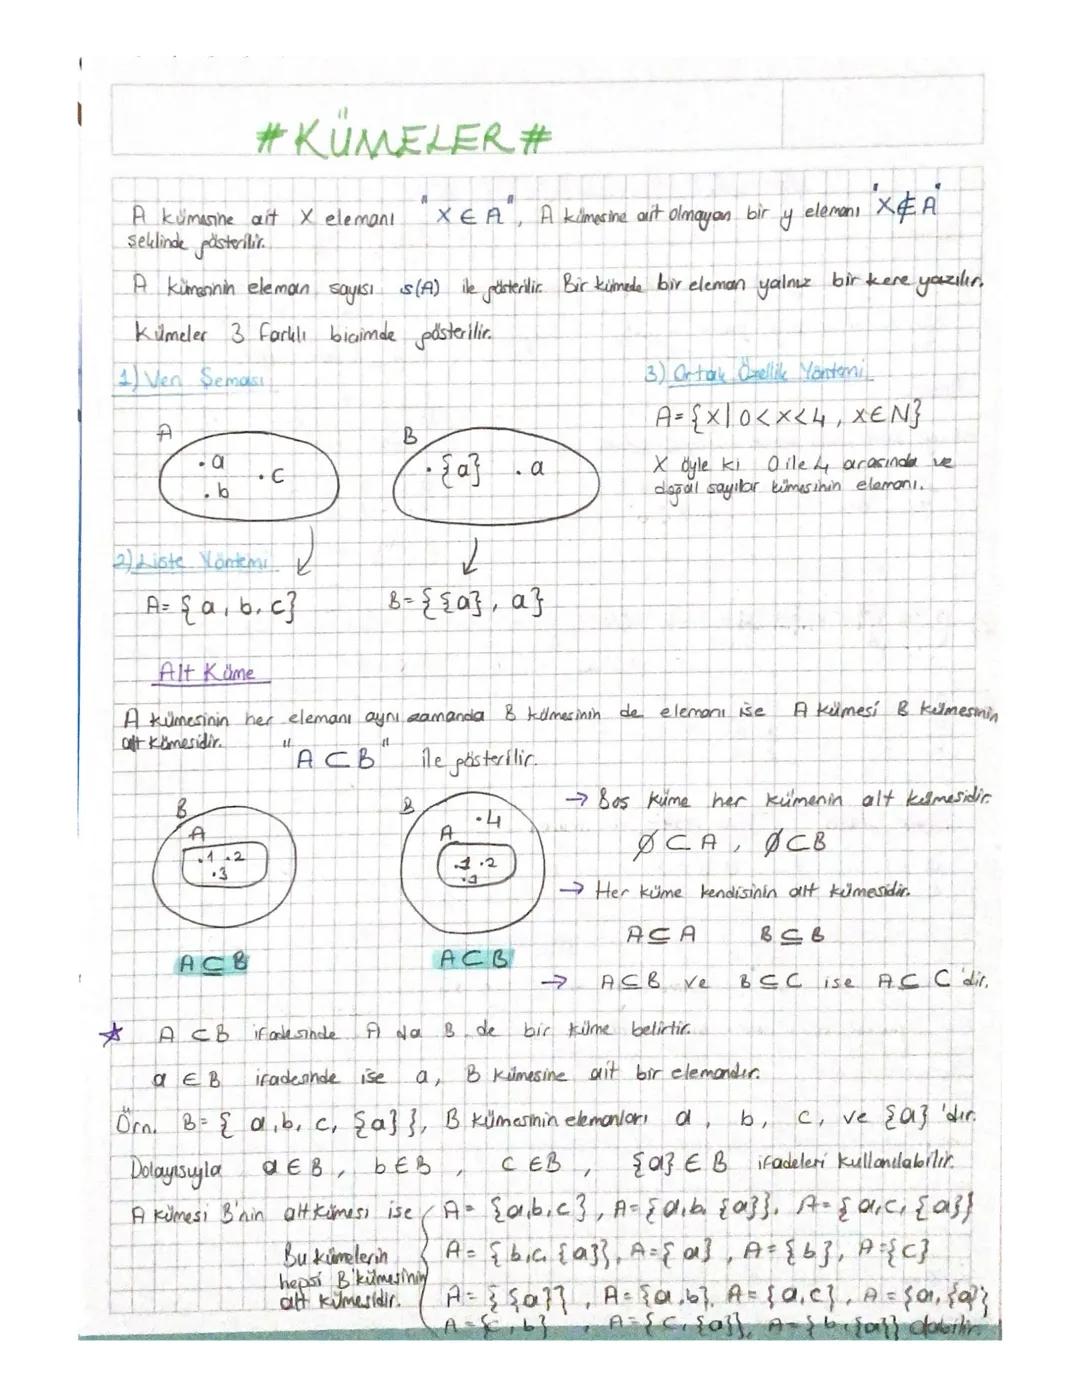 #KÜMELER#
A kümesine ait X elemanı "X ∈ A", A kümesine ait olmayan bir y elemanı "X∉A"
şeklinde gösterilir.
A kümesinin eleman sayısı s(A) ile gösterilir. Bir kümede bir eleman yalnız bir kere yazılır.
Kümeler 3 farklı biçimde gösterilir.
1) Ven Şeması
A
.a
.b
.c
B
.{a} .a
2) Liste Yöntemi
A= {a, b, c}
B={{a}, a}
3) Ortak Özellik Yöntemi
A={X|0<X<4, X∈N}
X öyle ki 0 ile 4 arasında ve
doğal sayılar kümesinin elemanı.
Alt Küme
A kümesinin her elemanı aynı zamanda B kümesinin de elemanı ise A kümesi B kümesinin
alt kümesidir.
"A⊂B" ile gösterilir.
B
A
.1 .2
.3
A⊆B
B
.4
A
.1 .2
.3
A⊂B
→ Boş küme her kümenin alt kümesidir.
∅⊂A, ∅⊂B
→ Her küme kendisinin alt kümesidir.
A⊆A B⊆B
→ A⊆B ve B⊆C ise A⊆C'dir.
☆ A⊂B ifadesinde A da B de bir küme belirtir.
a∈B ifadesinde ise a, B kümesine ait bir elemandır.
Örn. B={a,b,c,{a}}, B kümesinin elemanları a, b, c, ve {a}'dır.
Dolayısıyla a∈B, b∈B, c∈B, {a}∈B ifadeleri kullanılabilir.
A kümesi B'nin alt kümesi ise
Bu kümelerin
hepsi B kümesinin
alt kümesidir.
A= {a,b,c}, A={a,b,{a}}, A={a,c,{a}}
A= {b,c,{a}}, A={a}, A={b}, A={c}
A= {{a}}, A={a,b}, A={a,c}, A={a,{a}}
A={c,b}, A={c,{a}}, A={b,{a}} olabilir.